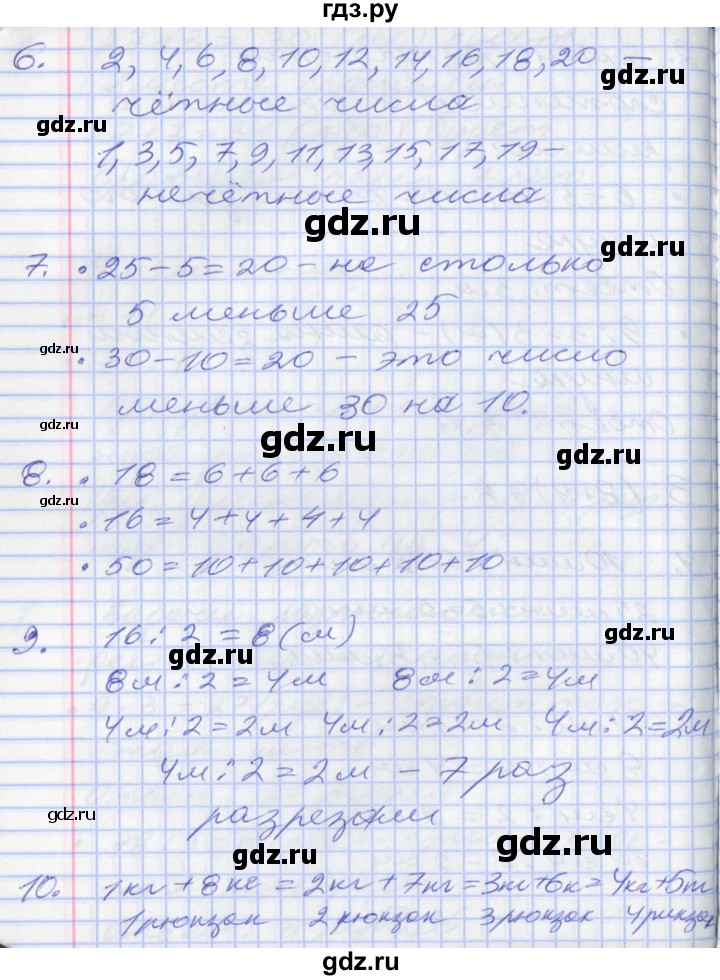 гдз.ру
6. 2, 4, 6, 8, 10, 12, 14, 16, 18, 20 –
gdz.ru
чётные числа
gdz.ru
1, 3, 5, 7, 9, 11, 13, 15, 17, 19 –
нечётные числа
gdz.ru
gdz.ru
7. • 25 – 5 = 20 – на столько
5 меньше 25
gdz.ru
• 30 – 10 = 20 – это число
меньше 30 на 10.
gdz.ru
gdz.ru
gdz.ru
8. • 18 = 6 + 6 + 6
gdz.ru
• 16 = 4 + 4 + 4 + 4
• 50 = 10 + 10 + 10 + 10 + 10
9. 16 : 2 = 8 (м)
gdz.ru
gdz.ru
8м : 2 = 4м 8м : 2 = 4м
4м : 2 = 2м 4м : 2 = 2м 4м : 2 = 2м
4м : 2 = 2м – 7 раз
gdz.ru
разрезали
gdz.ru
10. 1кг + 8кг = 2кг + 7кг = 3кг + 6к = 4кг + 5кг
1 рюкзак 2 рюкзак 3 рюкзак 4 рюкзак
gdz.ru
gdz.ru